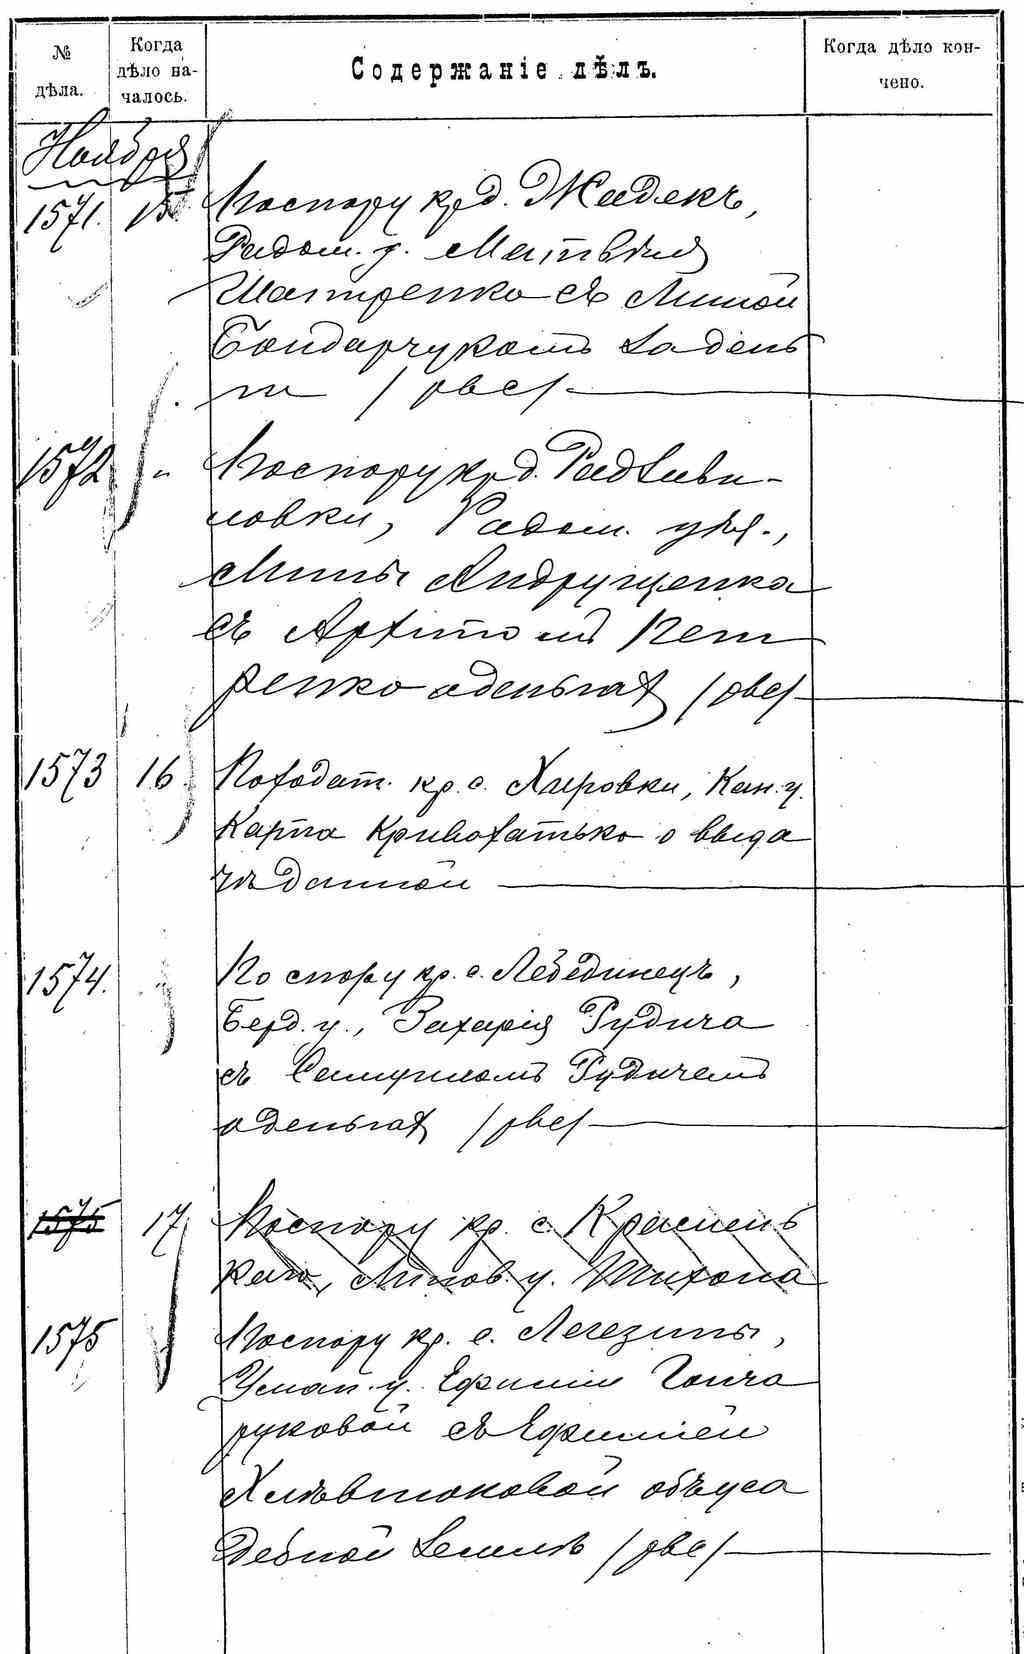 № дѣла.
Когда дѣло на-чалось.
Содержаніе дѣлъ.
Когда дѣло кон-чено.
Ноября
1571. 15 По спору кр. д. Жадекъ,
Радом. у. Матвѣя
Шатренко съ Миной
Бондарчукомъ за день
ги /рвс/
1572 " По спору кр. д. Радзиви-
ловки, Радом. уѣз.,
Мины Андрущенка
съ Артемомъ Пет
ренко о деньгах /рвс/
1573 16. По ходат. кр. с. Хировки, Кан. у.
Карпа Кривохатько о выда
чѣ данной
1574. По спору кр. с. Лебединецъ,
Берд. у., Захарія Рудича
съ Самуиломъ Рудичемъ
о деньгах /рвс/
1575 17. По спору кр. с. Красиень
каго, Липов. у. Тихона
1575 По спору кр. с. Легезины,
Уман. у. Ефиміи Гонча
руковой съ Ефиміей
Хлѣвнюковой объ уса
дебной землѣ /рвс/